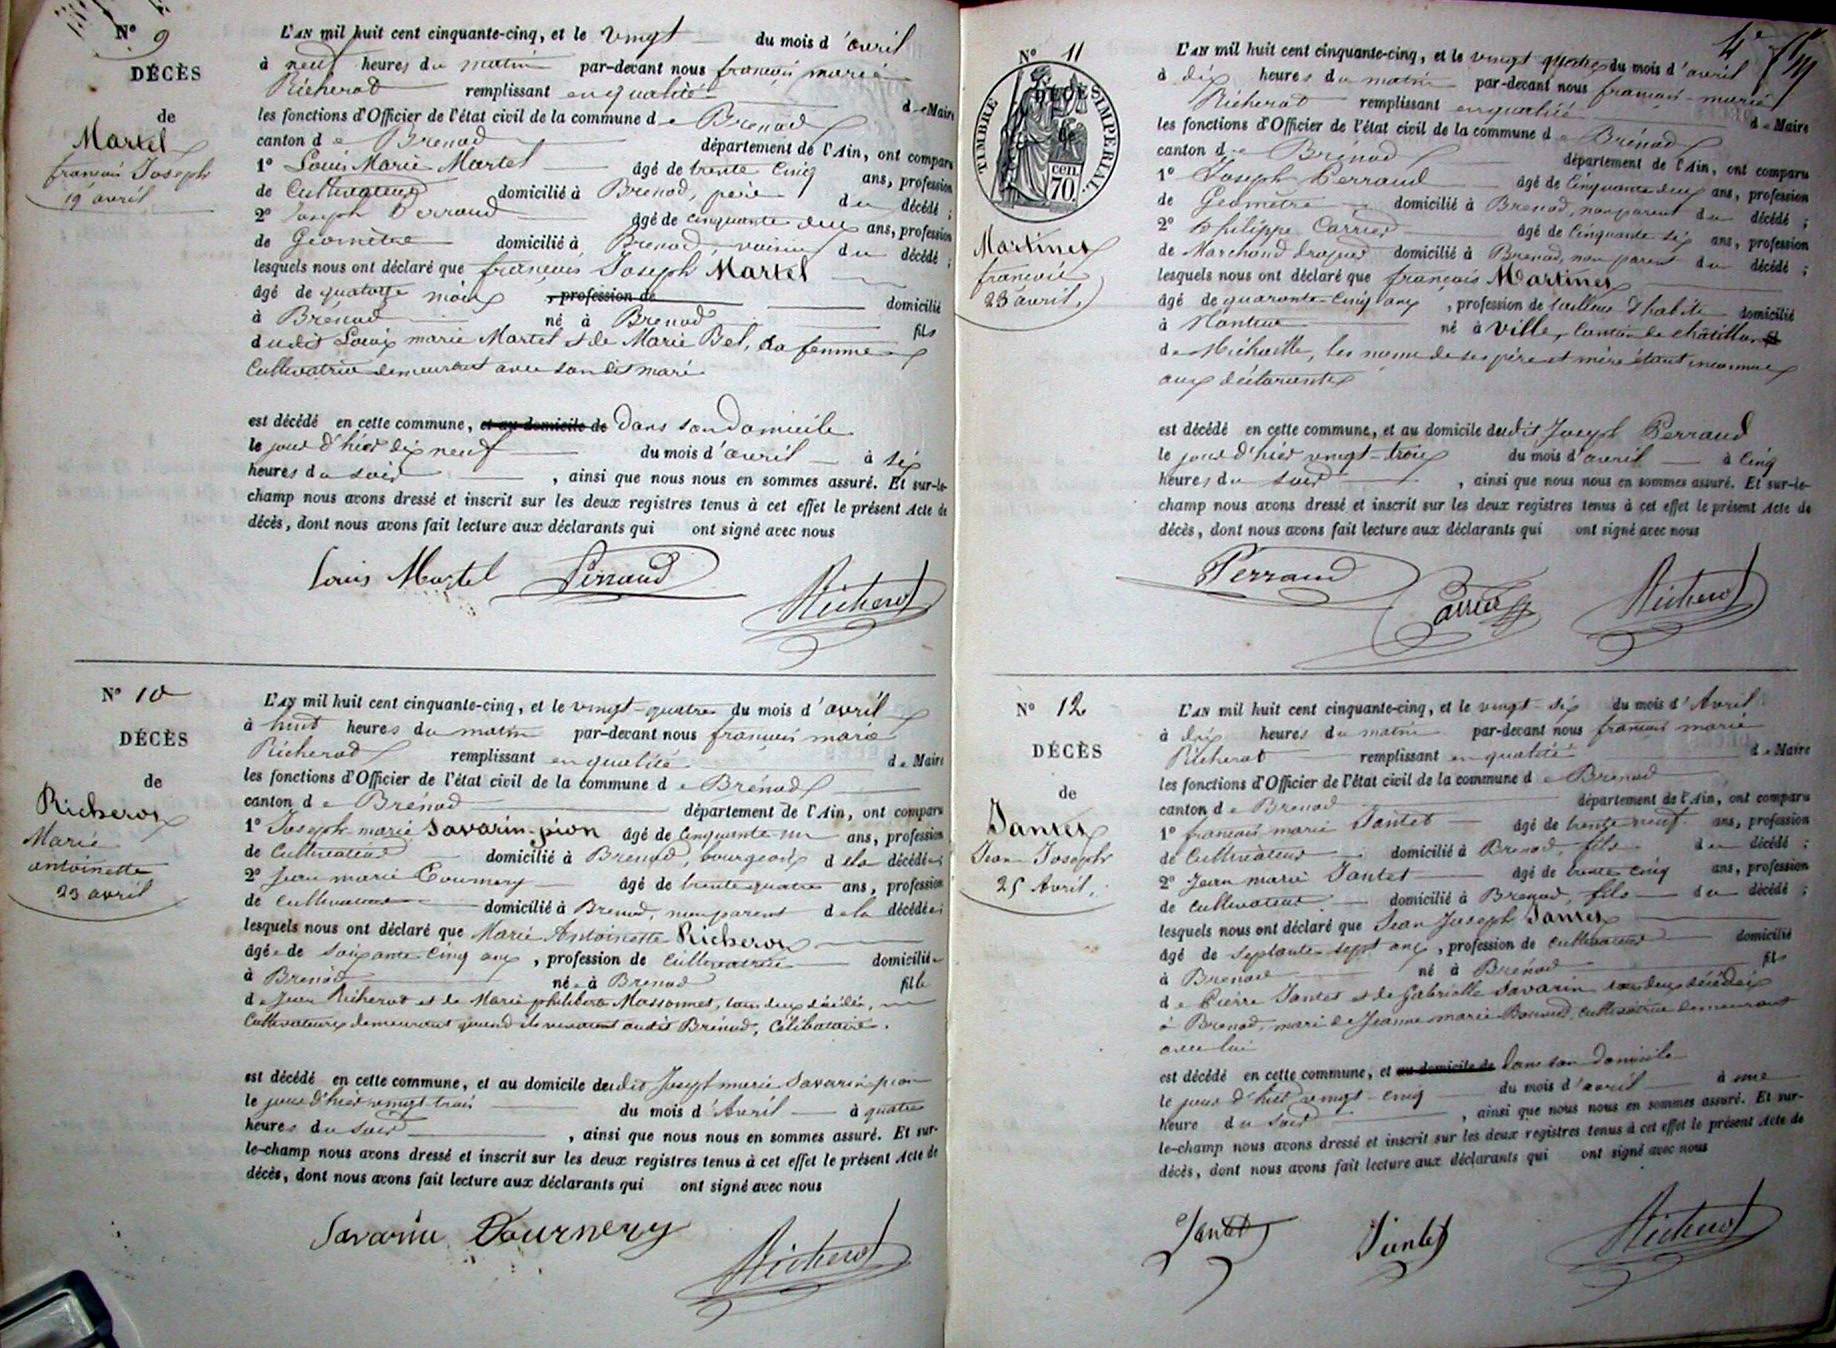 N° 9
DÉCÈS
de
Martel
françois Joseph
19 avril
L'AN mil huit cent cinquante-cinq, et le vingt du mois d'avril
à neuf heures du matin par-devant nous françois marie
Richerot remplissant en qualité de Maire
les fonctions d'Officier de l'état civil de la commune de Brenod
canton de Brenod département de l'Ain, ont comparu
1° Louis Marie Martel âgé de trente cinq ans, profession
de Cultivateur domicilié à Brenod, père du décédé ;
2° Joseph Perraud âgé de cinquante deux ans, profession
de Géomètre domicilié à Brenod, voisin du décédé ;
lesquels nous ont déclaré que françois Joseph Martel
âgé de quatorze mois, profession de domicilié
à Brénod né à Brenod fils
dudit Louis marie Martel et de Marie Bel, sa femme
Cultivatrice demeurant avec son dit mari
est décédé en cette commune, et au domicile de dans son domicile
le jour d'hier dix neuf du mois d'avril à six
heures du soir, ainsi que nous nous en sommes assuré. Et sur-le-
champ nous avons dressé et inscrit sur les deux registres tenus à cet effet le présent Acte de
décès, dont nous avons fait lecture aux déclarants qui ont signé avec nous
Louis Martel Perraud
Richerot
N° 10
DÉCÈS
de
Richerot
Marie
antoinette
23 avril
L'AN mil huit cent cinquante-cinq, et le vingt-quatre du mois d'avril
à huit heures du matin par-devant nous françois marie
Richerot remplissant en qualité de Maire
les fonctions d'Officier de l'état civil de la commune de Brénod
canton de Brénod département de l'Ain, ont comparu
1° Joseph marie Savarin-pion âgé de Cinquante-un ans, profession
de Cultivateur domicilié à Brenod, bourgeois de la décédée ;
2° Jean marie Tournery âgé de trente quatre ans, profession
de cultivateur domicilié à Brenod, non parent de la décédée ;
lesquels nous ont déclaré que Marie Antoinette Richerot
âgée de soixante cinq ans, profession de Cultivatrice domiciliée
à Brenod née à Brenod fille
de Jean Richerot et de Marie philiberte Massonnet, tous deux décédés,
Cultivateurs demeurant quand ils vivaient audit Brénod, Célibataire.
est décédé en cette commune, et au domicile dudit Joseph marie Savarin pion
le jour d'hier vingt-trois du mois d'Avril à quatre
heures du soir, ainsi que nous nous en sommes assuré. Et sur-
le-champ nous avons dressé et inscrit sur les deux registres tenus à cet effet le présent Acte de
décès, dont nous avons fait lecture aux déclarants qui ont signé avec nous
Savarin Tournery
Richerot
4e
N° 11
TIMBRE IMPERIAL
70 CEN.
Martinet
françois
23 avril.
L'AN mil huit cent cinquante-cinq, et le vingt quatre du mois d'avril
à dix heures du matin par-devant nous françois marie
Richerot remplissant en qualité de Maire
les fonctions d'Officier de l'état civil de la commune de Brénod
canton de Brénod département de l'Ain, ont comparu
1° Joseph Perraud âgé de Cinquante deux ans, profession
de Géomètre domicilié à Brenod, non parent du décédé ;
2° Philippe Carrier âgé de Cinquante six ans, profession
de Marchand drapier domicilié à Brenod, non parent du décédé ;
lesquels nous ont déclaré que françois Martinet
âgé de quarante-cinq ans, profession de tailleur d'habits domicilié
à Nantua né à Ville, Canton de châtillon
de Michaille, les noms de ses père et mère étant inconnus
aux déclarants
est décédé en cette commune, et au domicile dudit Joseph Perraud
le jour d'hier vingt-trois du mois d'avril à cinq
heures du soir, ainsi que nous nous en sommes assuré. Et sur-le-
champ nous avons dressé et inscrit sur les deux registres tenus à cet effet le présent Acte de
décès, dont nous avons fait lecture aux déclarants qui ont signé avec nous
Perraud
Carrier Richerot
N° 12
DÉCÈS
de
Jantet
Jean Joseph
25 Avril.
L'AN mil huit cent cinquante-cinq, et le vingt-six du mois d'Avril
à dix heures du matin par-devant nous françois marie
Richerot remplissant en qualité de Maire
les fonctions d'Officier de l'état civil de la commune de Brenod
canton de Brenod département de l'Ain, ont comparu
1° françois marie Jantet âgé de trente neuf ans, profession
de Cultivateur domicilié à Brenod, fils du décédé ;
2° Jean marie Jantet âgé de trente cinq ans, profession
de Cultivateur domicilié à Brenod, fils du décédé ;
lesquels nous ont déclaré que Jean Joseph Jantet
âgé de septante sept ans, profession de cultivateur domicilié
à Brenod né à Brénod fils
de Pierre Jantet et de Gabrielle Savarin tous deux décédés
à Brenod, mari de Jeanne marie cultivatrice demeurant
avec lui
est décédé en cette commune, et au domicile de dans son domicile
le jour d'hier vingt-cinq du mois d'avril à une
heure du soir, ainsi que nous nous en sommes assuré. Et sur-
le-champ nous avons dressé et inscrit sur les deux registres tenus à cet effet le présent Acte de
décès, dont nous avons fait lecture aux déclarants qui ont signé avec nous
Jantet Jantet Richerot